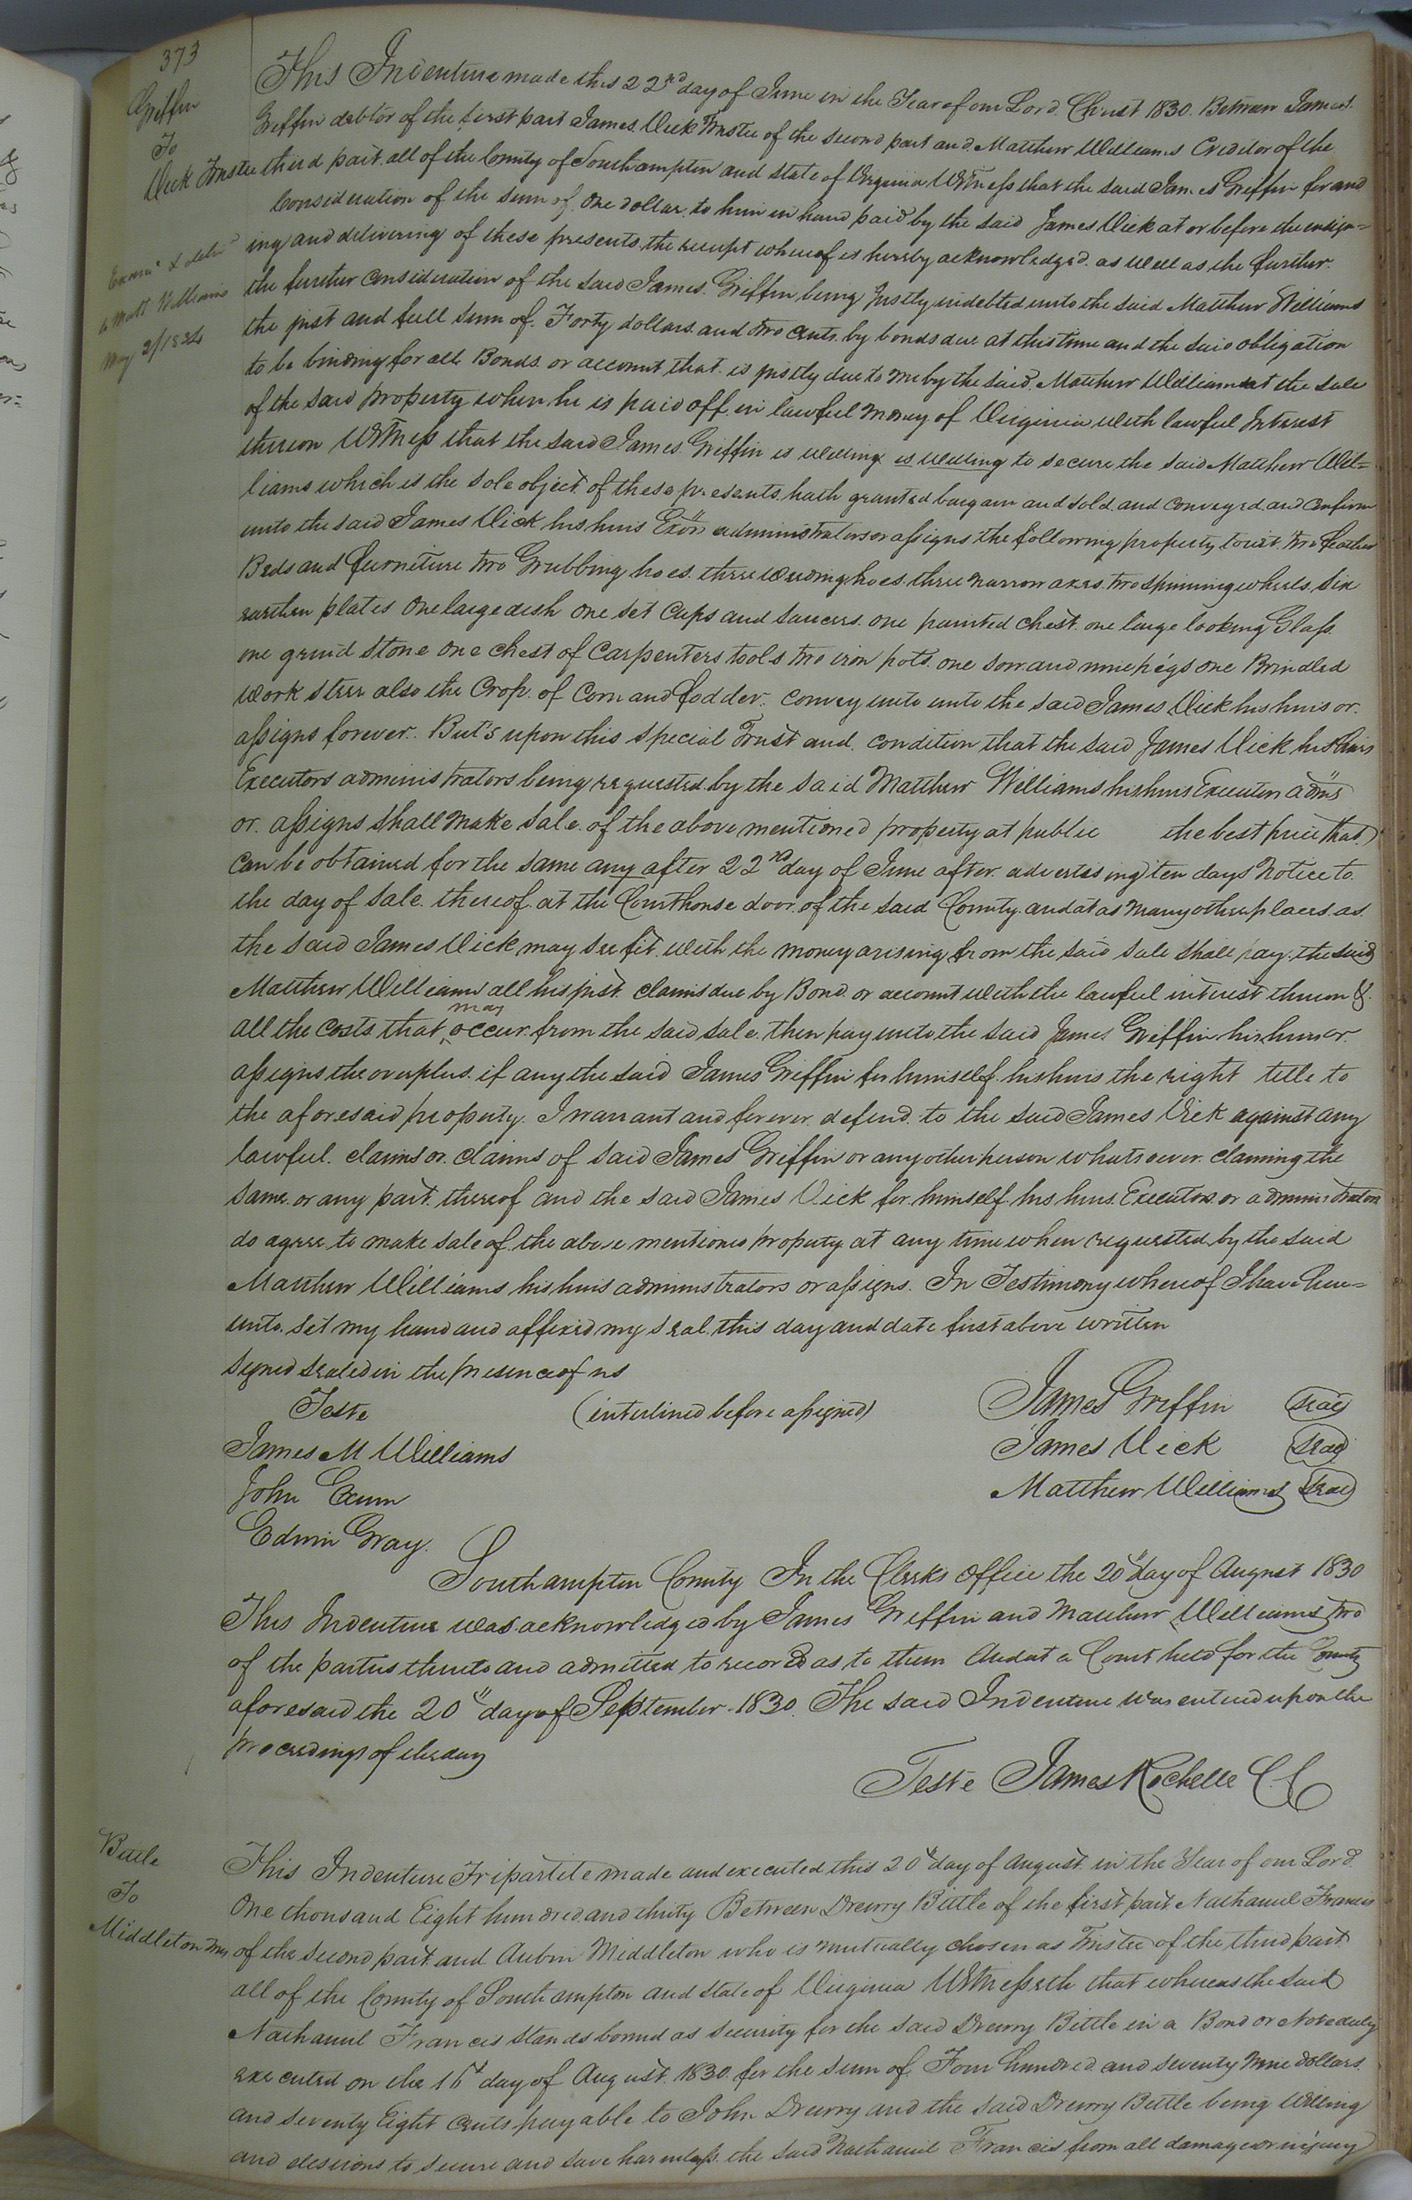 373
Griffin
To
Vick Trustee
Examd & delivd
to Matt Williams
May 2/1834
This Indenture made this 22nd day of June in the Year of our Lord Christ 1830. Between James
Griffin debtor of the first part James Vick Trustee of the second part and Matthew Williams Creditor of the
third part all of the County of Southampton and state of Virginia Witness that the said James Griffin for and
Consideration of the sum of One dollar to him in hand paid by the said James Vick at or before the ensign=
ing and delivering of these presents the receipt whereof is hereby acknowledged as well as the further
the further Consideration of the said James Griffin being justly indebted unto the said Matthew Williams
the just and full sum of Forty dollars and two cents by bonds due at this time and the said obligation
to be binding for all Bonds or account that is justly due to me by the said Matthew Williams at the sale
of the said property when he is paid off in lawful money of Virginia with lawful Interest
thereon Witness that the said James Griffin is willing is willing to secure the said Matthew Wil=
liams which is the sole object of these presents hath granted bargain and sold and conveyed and confirm
unto the said James Vick his heirs Exors administrators or assigns the following property towit two feather
Beds and furniture two Grubbing hoes three weeding hoes three narrow axes two spinning wheels six
earthen plates One large dish one set Cups and saucers one painted chest one large looking Glass
one grind stone one chest of Carpenters tools two iron pots one sow and nine pigs one Brindled
work steer also the Crop of Corn and fodder convey unto unto the said James Vick his heirs or
assigns forever. But upon this special Trust and condition that the said James Vick his heirs
Executors administrators being requested by the said Matthew Williams his heirs Executors adms
or assigns shall make sale of the above mentioned property at public the best price that
can be obtained for the same any after 22nd day of June after advertising ten days Notice to
the day of sale thereof at the Courthouse door of the said County and at as many other places as
the said James Vick may see fit with the money arising from the said sale shall pay the said
Matthew Williams all his just claims due by Bond or account with the lawful interest thereon &
all the costs that may occur from the said sale then pay unto the said James Griffin his heirs or
assigns the overplus if any the said James Griffin for himself his heirs the right title to
the aforesaid property I warrant and forever defend to the said James Vick against any
lawful claims or claims of said James Griffin or any other person whatsoever claiming the
same or any part thereof and the said James Vick for himself his heirs Executors or administrators
do agree to make sale of the above mentioned property at any time when requested by the said
Matthew Williams his heirs administrators or assigns. In Testimony whereof I have here=
unto set my hand and affixed my seal this day and date first above written
Signed sealed in the presence of us
Teste (interlined before assigned) James Griffin (seal)
James M Williams James Vick (seal)
John Exum Matthew Williams (seal)
Edwin Gray.
Southampton County In the Clerks Office the 20" day of August 1830
This Indenture was acknowledged by James Griffin and Matthew Williams two
of the parties thereto and admitted to record as to them And at a Court held for the County
aforesaid the 20" day of September 1830. The said Indenture was entered upon the
proceedings of the day
Teste James Rochelle CC
Bittle
To
Middleton Trus
This Indenture Tripartite made and executed this 20th day of August in the Year of our Lord
One thousand Eight hundred and thirty Between Drewry Bittle of the first part Nathaniel Francis
of the second part and Aubin Middleton who is mutually chosen as Trustee of the third part
all of the County of Southampton and state of Virginia Witnesseth that whereas the said
Nathaniel Francis stands bound as security for the said Drewry Bittle in a Bond or Note duly
executed on the 16th day of August 1830 for the sum of Four hundred and seventy nine dollars
and seventy Eight cents payable to John Drewry and the said Drewry Bittle being willing
and desirous to secure and save harmless the said Nathaniel Francis from all damage or injury